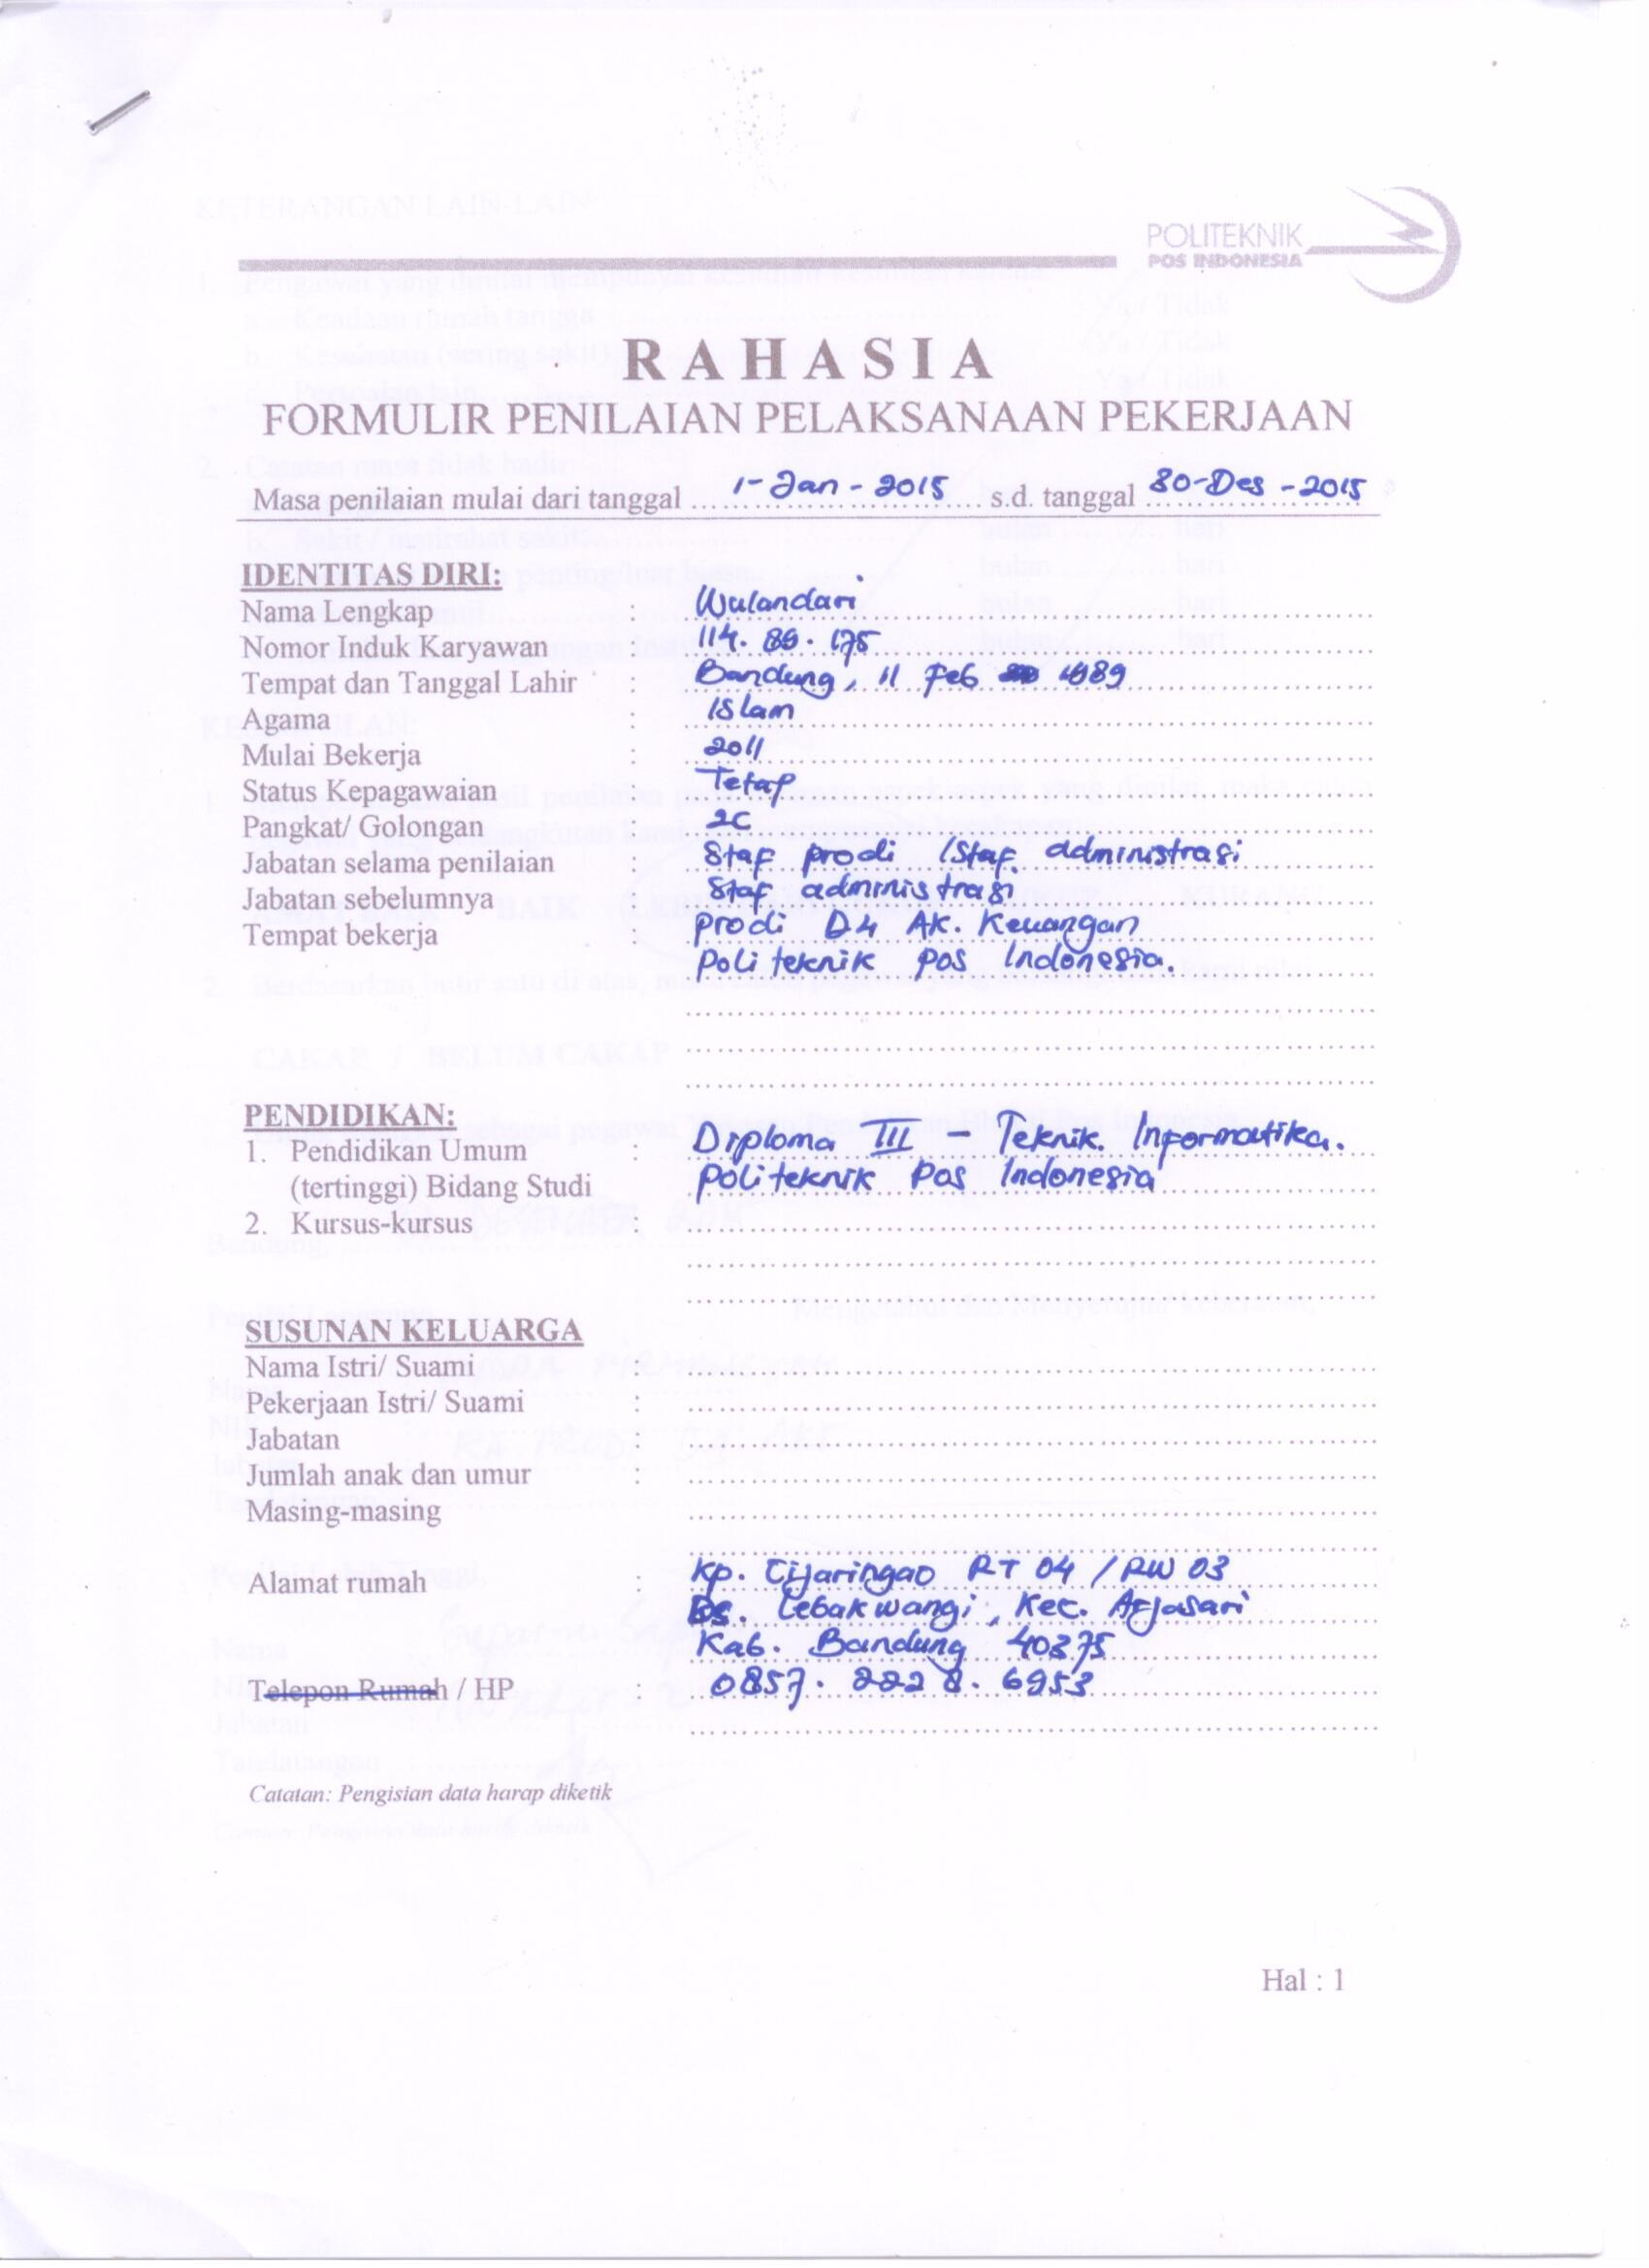 POLITEKNIK
POS INDONESIA
RAHASIA
FORMULIR PENILAIAN PELAKSANAAN PEKERJAAN
Masa penilaian mulai dari tanggal 1-Jan-2015 s.d. tanggal 30-Des-2015
IDENTITAS DIRI:
Nama Lengkap : Wulandari
Nomor Induk Karyawan : 114.89.175
Tempat dan Tanggal Lahir : Bandung, 11 Feb 1989
Agama : Islam
Mulai Bekerja : 2011
Status Kepagawaian : Tetap
Pangkat/ Golongan : 2C
Jabatan selama penilaian : Staf prodi /Staf. administrasi
Jabatan sebelumnya : Staf administrasi
Tempat bekerja : prodi D4 AK. Keuangan
Politeknik pos Indonesia.
PENDIDIKAN:
1. Pendidikan Umum : Diploma III - Teknik. Informatika.
(tertinggi) Bidang Studi Politeknik Pos Indonesia
2. Kursus-kursus :
SUSUNAN KELUARGA
Nama Istri/ Suami :
Pekerjaan Istri/ Suami :
Jabatan :
Jumlah anak dan umur :
Masing-masing
Alamat rumah : Kp. Cijaringao RT 04 / RW 03
Ds. Lebakwangi, Kec. Arjasari
Kab. Bandung 40375
Telepon Rumah / HP : 0857.2228.6953
Catatan: Pengisian data harap diketik
Hal : 1